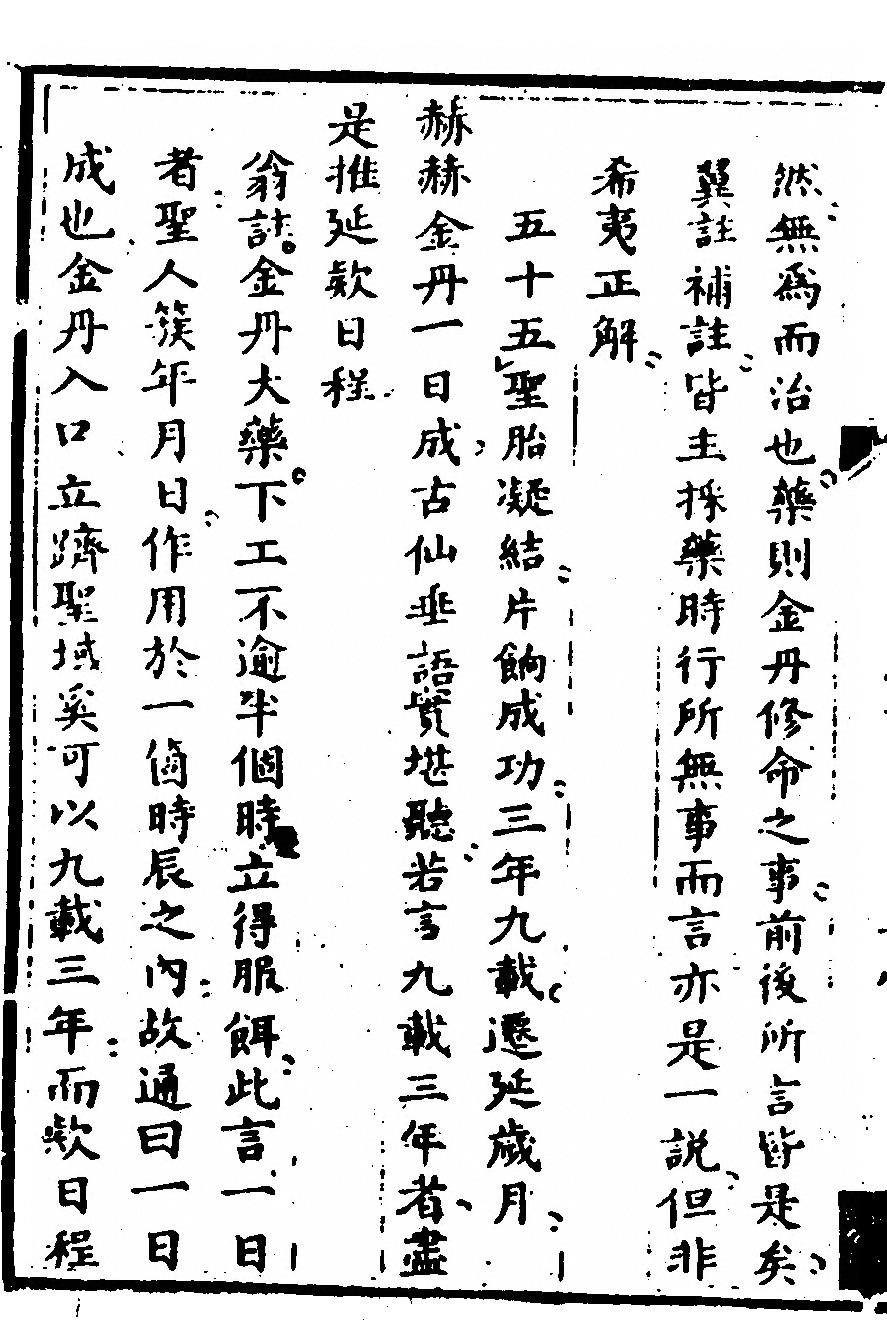 然無爲而治也藥則金丹修命之事前後所言皆是矣
翼註補註皆主採藥時行所無事而言亦是一説但非
希夷正解
五十五聖胎凝結片餉成功三年九載遷延歲月
赫赫金丹一日成古仙垂語實堪聽若言九載三年者盡
是推延欵日程
翁註金丹大藥下工不逾半個時立得服餌此言一日
者聖人簇年月日作用於一箇時辰之內故通曰一日
成也金丹入口立躋聖域奚可以九載三年而欵日程